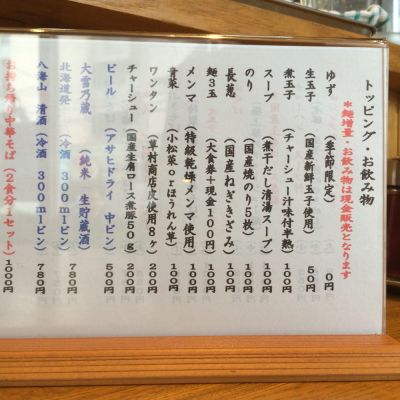 トッピング・お飲み物
*麺増量、お飲み物は現金販売となります
ゆず（季節限定） 0円
生玉子（国産新鮮玉子使用） 50円
煮玉子（チャーシュー汁味付半熟） 100円
スープ（煮干だし清湯スープ） 100円
のり（国産焼のり5枚） 100円
長葱（国産ねぎきざみ） 100円
麺3玉（大食券+現金100円） 100円
メンマ（特級乾燥メンマ使用） 100円
青菜（小松菜orほうれん草） 100円
ワンタン（草村商店皮使用8） 200円
チャーシュー（国産生肩ロース煮豚50g） 200円
ビール（アサヒドライ 中ビン） 500円
大雪乃蔵（純米 生貯蔵酒）
北海道発（冷酒 300mlビン） 780円
八海山 清酒（冷酒 300mlビン） 780円
お持ち帰り中華そば（2食分1セット） 1000円